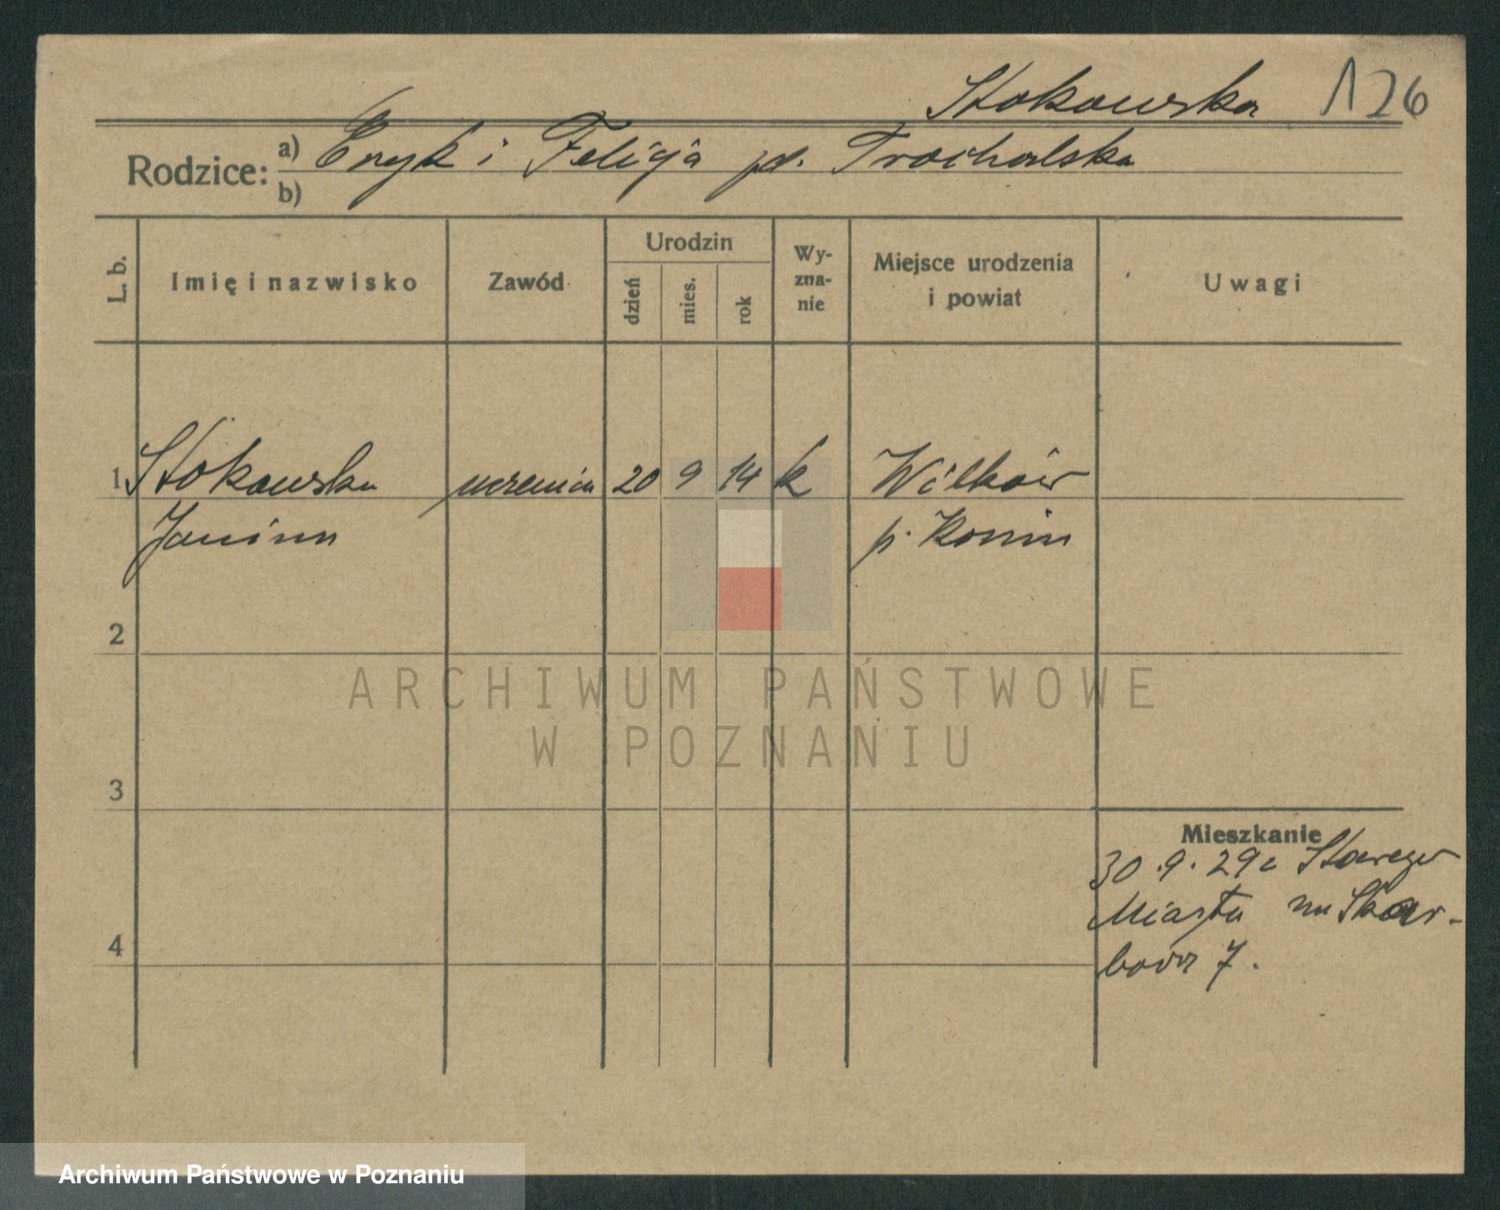 Stokowska 126
Rodzice: a) Eryk i Felicja zd. Trochalska
b)
L. b. Imię i nazwisko Zawód Urodzin dzień mies. rok Wyznanie Miejsce urodzenia i powiat Uwagi
1 Stokowska uczenica 20 9 14 k Wilków
Janina p. Konin
2
ARCHIWUM PAŃSTWOWE
W POZNANIU
3
Mieszkanie
30.9.29 z Starego
Miasta na Skar-
bova 7.
4
Archiwum Państwowe w Poznaniu